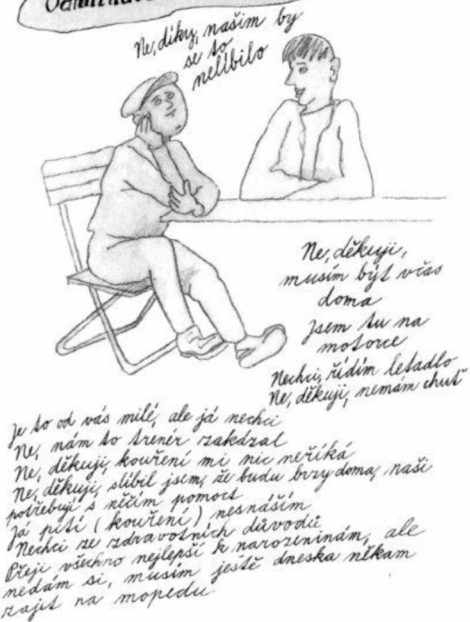 Ne, díky, našim by
se to
nelíbilo
Ne, děkuji,
musím být včas
doma
Jsem tu na
motorce
Nechci, řídím letadlo
Ne, děkuji, nemám chuť
Je to od vás milé, ale já nechci
Ne, nám to trenér zakázal
Ne, děkuji, kouření mi nic neříká
Ne, děkuji, slíbil jsem, že budu brzy doma, naši
potřebují s něčím pomoct
Já pití (kouření) nesnáším
Nechci ze zdravotních důvodů
Přeji všechno nejlepší k narozeninám, ale
nedám si, musím ještě dneska někam
zajít na mopedu